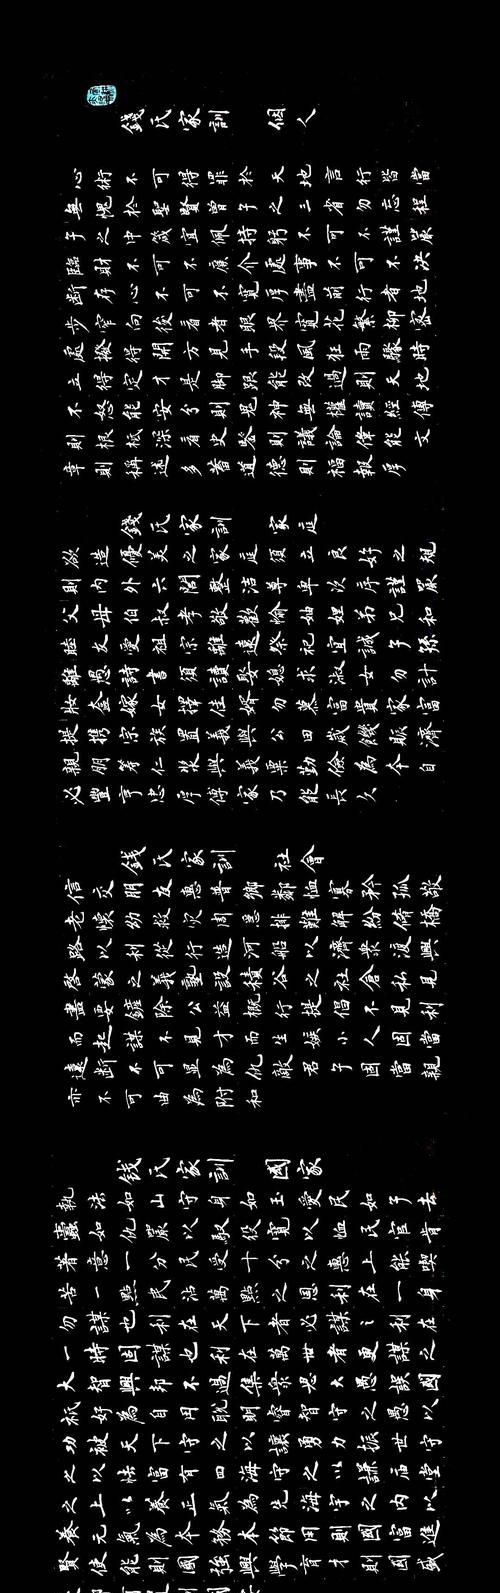 錢氏家訓 個人
心術不可得罪於天地言行皆當
無愧於聖賢曾子之三省勿忘程
子之中箴宜佩持躬不可不謹嚴
臨財不可不廉介處事不可不決
斷存心不可不寬厚盡前行者地
步窄向後看者眼界寬花繁柳密
處撥得開方見手段風狂雨驟時
立得定才是腳跟能改過則天地
不怒能安分則鬼神無權讀經傳
則根柢深看史鑒則議論偉能文
章則稱述多蓄道德則福報厚
錢氏家訓 家庭
欲造優美之家庭須立良好之規
則內外六閭整潔尊卑次序謹嚴
父母伯叔孝敬歡愉妯娌弟兄和
睦友愛祖宗雖遠祭祀宜誠子孫
雖愚詩書須讀娶媳求淑女勿計
妝奩嫁女擇佳婿勿慕富貴家富
提攜宗族置義與公田歲饑賑濟
親朋籌仁漿與義粟勤儉為本自
必豐亨忠厚傳家乃能長久
錢氏家訓 社會
信交朋友惠普鄉鄰恤寡矜孤敬
老懷幼救災周急排難解紛修橋
路以利從行造河船濟眾渡興
啟蒙之義塾設積穀之社倉私見
盡要鏟除公益概行提倡不見利
而起謀不見才而生嫉小人固當
遠斷不可顯為仇敵君子固當親
亦不可曲為附和
錢氏家訓 國家
執法如山守身如玉愛民如子去
蠹如仇嚴以馭役寬以恤民官肯
著意一分民受十分之惠上能喫
苦一點民沾萬點之恩利在一身
勿謀也利在天下者必謀之利在
一時固謀也利在萬世者更謀之
大智興邦不過集眾思大愚誤國
祇為好自用聰明睿智守之以愚
功被天下守之以讓勇力振世守
之以怯富有四海守之以謙廟堂
之上以養正氣為先海宇之內以
養元氣為本務本節用則國富進
賢使能則國強興學育才則國盛